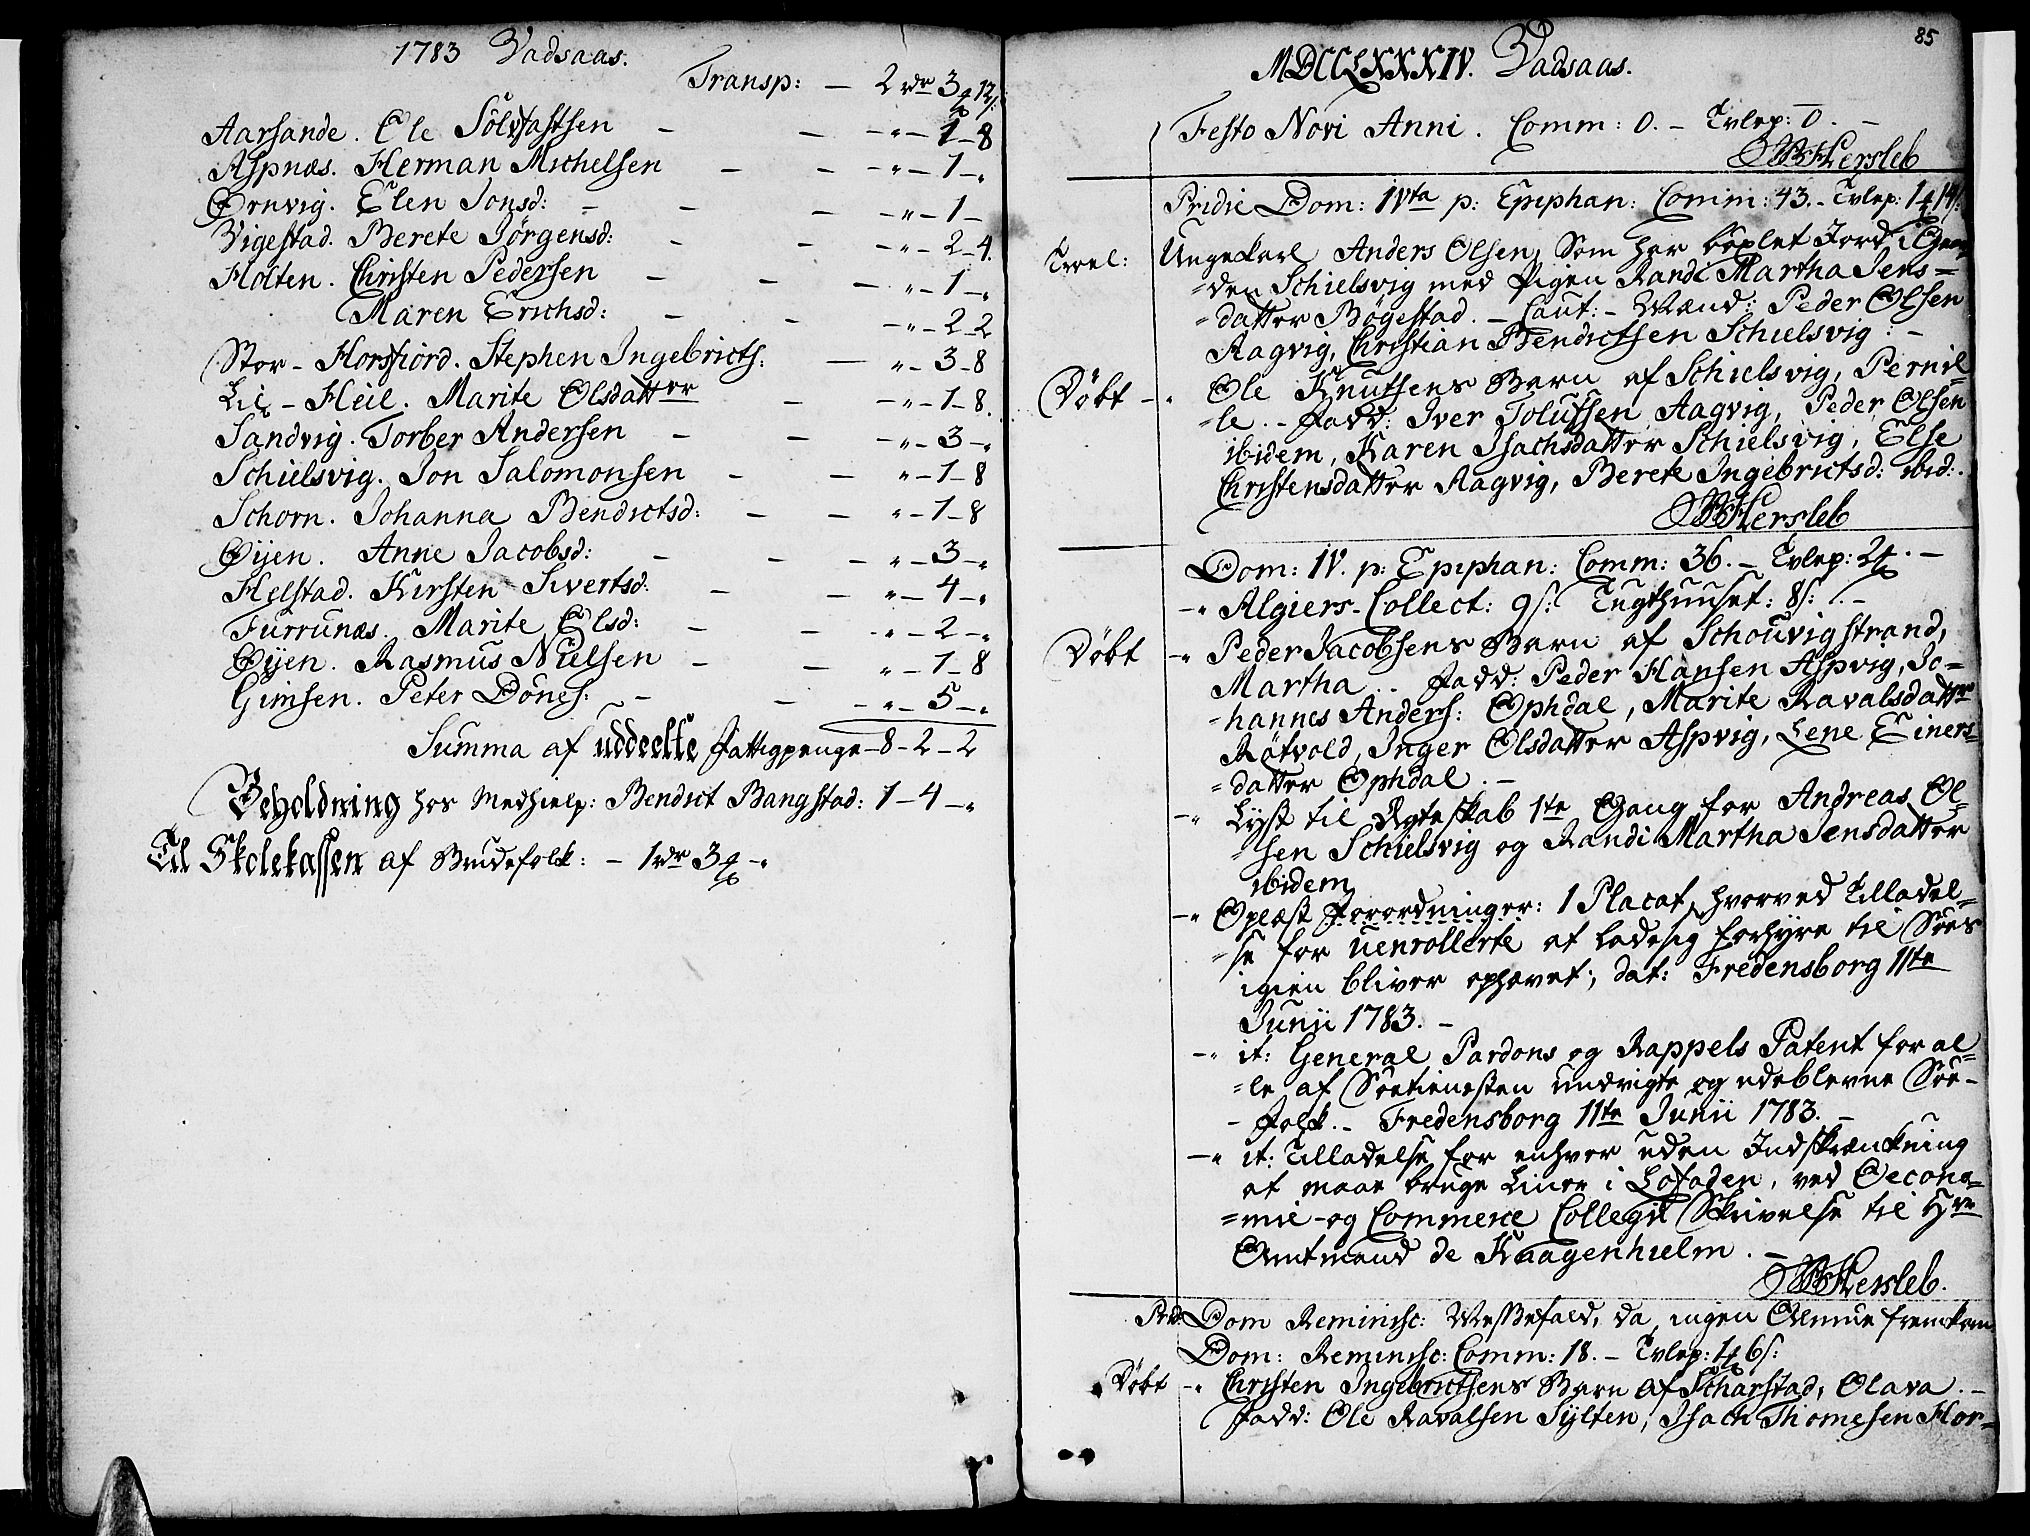 1783 Vadsaas.
Transp: — 2 rdr 3 ₰ 12 s:
Aarsande. Ole Sölfastsen — — —"— 1–8
Aspnæs. Herman Michelsen — — —"— 1—"
Ørnvig. Elen Jonsd: — — — —"— 1—
Vigestad. Berete Jörgensd: — — —"— 2–4
Holten. Christen Pedersen — — — "— 1—"
Maren Erichsd: — — —"— 2–2
Stor-Horsfiord. Stephen Ingebricts: — "— 3–8
Lil-Heil. Marite Olsdatter — —"— 1–8.
Sandvig. Torber Andersen — — —"— 3—"
Schielsvig. Jon Salomonsen — — "— 1–8
Schorn. Johanna Bendictsd: — — "— 1–8
Øyen. Anne Jacobsd: — — — "— 3—"
Helstad. Kirsten Sivertsd: — — "— 4—"
Furrunæs. Marite Olsd: — — "— 2—"
Øyen. Rasmus Nielsen — — "— 1–8
Gimsen. Peter Dónes: — — —"— 5—"
Summa af uddeelte Fattigpenge — 8–2–2
Beholdning hos Medhielp: Bendict Bangstad: 1–4—"
Til Skolekassen af Brudefolk: — 1 rdr 3 ₰ —"
85
MDCCLXXXIV. Vadsaas.
Festo Novi Anni. Comm: 0. — Tvlep: 0. —
Hersleb
Pridie Dom: IVta p: Epiphan: Comm: 43. — Tvlep: 1 ₰ 14 s:
Trol: Ungekarl Anders Olsen, som har böxlet Jord i Gaar=
=den Schielsvig med Pigen Randi Martha Jens=
=datter Bögestad. — Caut: — Mænd: Peder Olsen
Aagvig, Christian Bendictsen Schielsvig: —
Döbt —" Ole Knutsens Barn af Schielsvig, Pernil=
=le. — Fadd: Iver Tolufsen Aagvig, Peder Olsen
ibidem, Karen Isachsdatter Schielsvig, Else
Christensdatter Aagvig, Berete Ingebrictsd: ibid:.
Hersleb
Dom: IV. p: Epiphan: Comm: 36. — Tvlep: 2 ₰. —
—" Algiers-Collect: 9 s: Tugthuuset: 8 s: —
Döbt —" Peder Jacobsens Barn af Schouvigstrand,
Martha. — Fadd: Peder Hansen Aspvig, Jo=
=hannes Anders: Ophdal, Marite Ravalsdatter
Røtvold, Inger Olsdatter Aspvig, Lene Einers=
=datter Ophdal. —
—" Lyst til Egteskab 1te Gang for Andreas Ol=
=sen Schielsvig og Randi Martha Jensdatter
ibidem
—" Oplæst Forordninger: 1 Placat, hvorved Tilladel=
=se for uenrollerte at lade sig forhyre til Söes
igien bliver ophævet; dat: Fredensborg 11te
Junii 1783. —
—" it: General Pardons og Rappels Patent for al=
=le af Söetienesten undvigte og udeblevne Söe-
-folk. — Fredensborg 11te Junii 1783. —
—" it: Tilladelse for enhver uden Indskrænkning
at maae bruge Liner i Lofoden, ved Oecono=
=mie- og Commerce Collegii Skrivelse til Hrr
Amtmand de Knagenhielm. —
Hersleb.
Prid: Dom Reminisc: Messefald, da ingen Almue fremkom
Dom: Reminisc: Comm: 18. — Tvlep: 1 ₰ 6 s:
Döbt —" Christen Ingebrictsens Barn af Scharstad, Olava. —
Fadd: Ole Ravalsen Sylten, Isach Thomesen Hor=